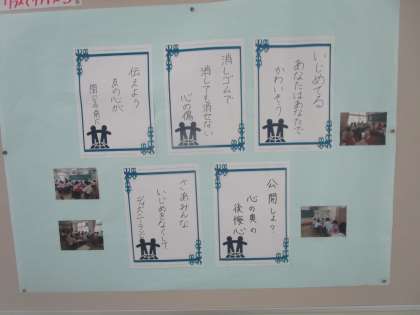 いじめてる
あなたはあなたで
かわいそう
消しゴムで
消しても消せない
心の傷
伝えよう
友の心が
公開しよう
心の奥の
後悔心
さあみんな
いじめをなくして